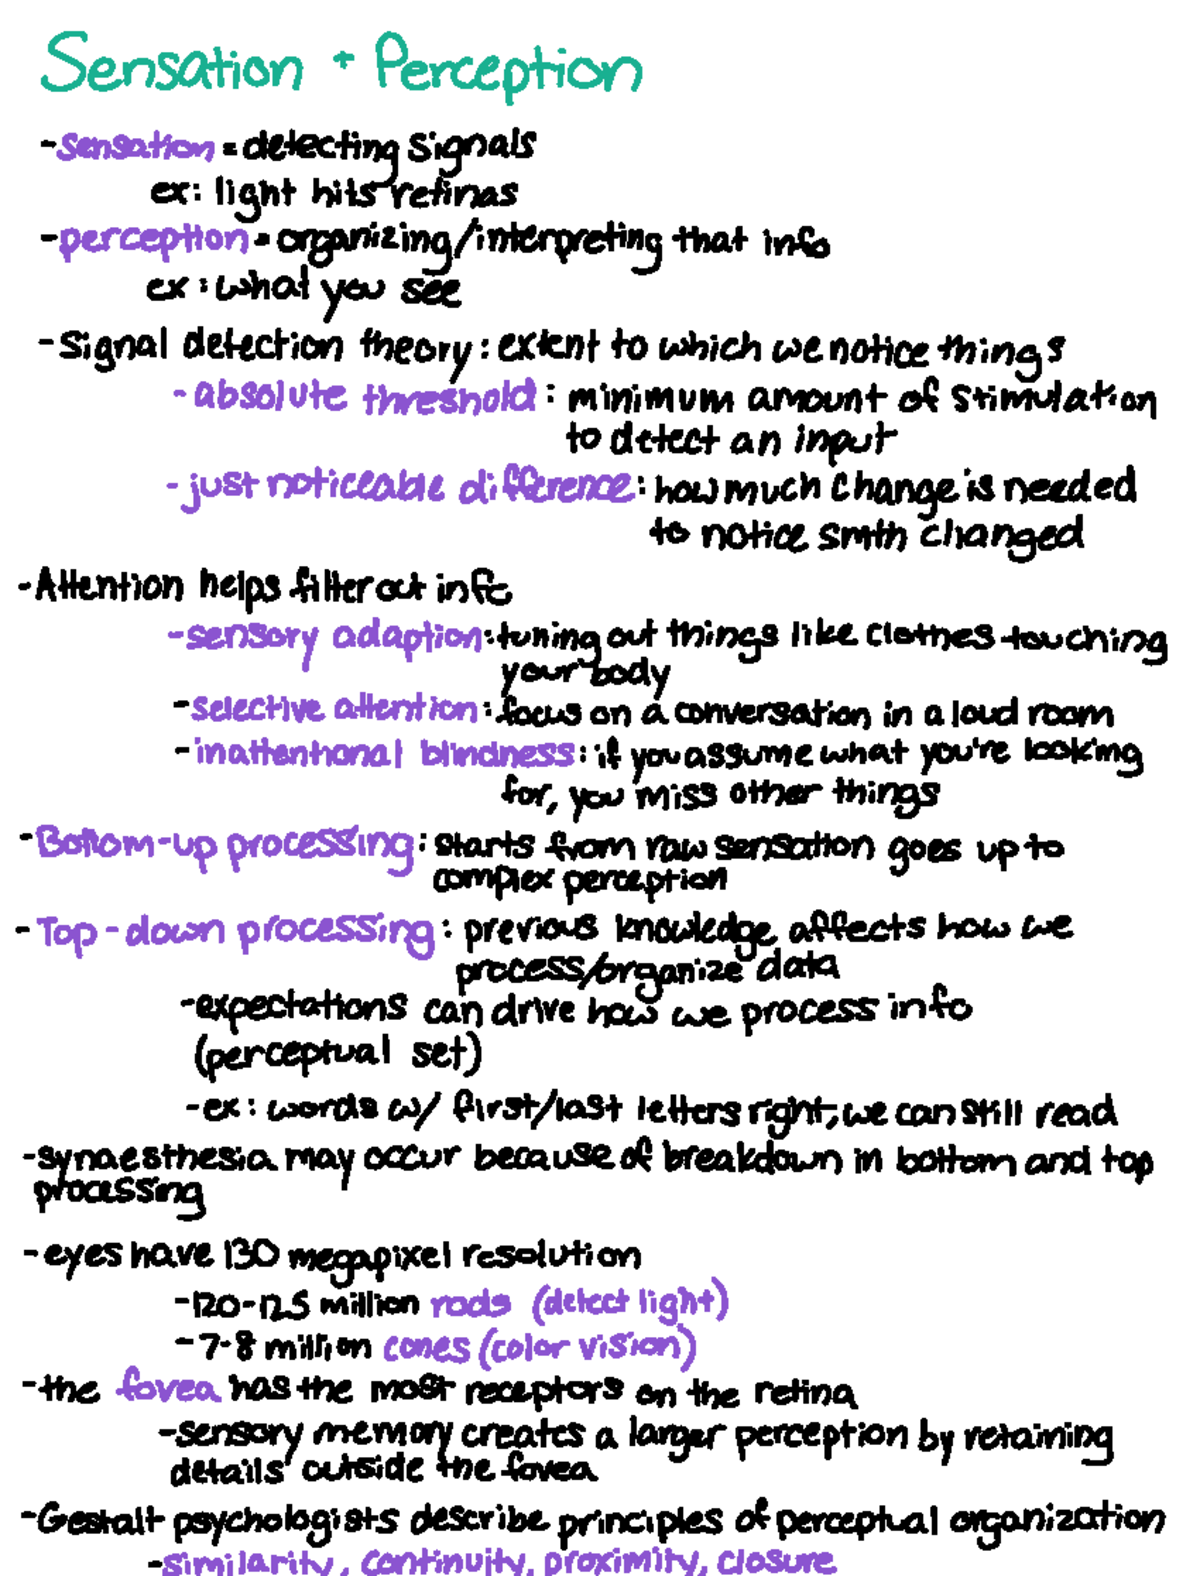 Sensation + Perception
-sensation = detecting signals
ex: light hits retinas
-perception = organizing/interpreting that info
ex: what you see
-signal detection theory: extent to which we notice things
-absolute threshold: minimum amount of stimulation
to detect an input
-just noticeable difference: how much change is needed
to notice smth changed
-Attention helps filter out info
-sensory adaption: tuning out things like clothes touching
your body
-selective attention: focus on a conversation in a loud room
-inattentional blindness: if you assume what you're looking
for, you miss other things
-Bottom-up processing: starts from raw sensation goes up to
complex perception
-Top-down processing: previous knowledge affects how we
process/organize data
-expectations can drive how we process info
(perceptual set)
-ex: words w/ first/last letters right, we can still read
-synaesthesia may occur because of breakdown in bottom and top
processing
-eyes have 130 megapixel resolution
-120-125 million rods (detect light)
-7-8 million cones (color vision)
-the fovea has the most receptors on the retina
-sensory memory creates a larger perception by retaining
details outside the fovea
-Gestalt psychologists describe principles of perceptual organization
-similarity, continuity, proximity, closure